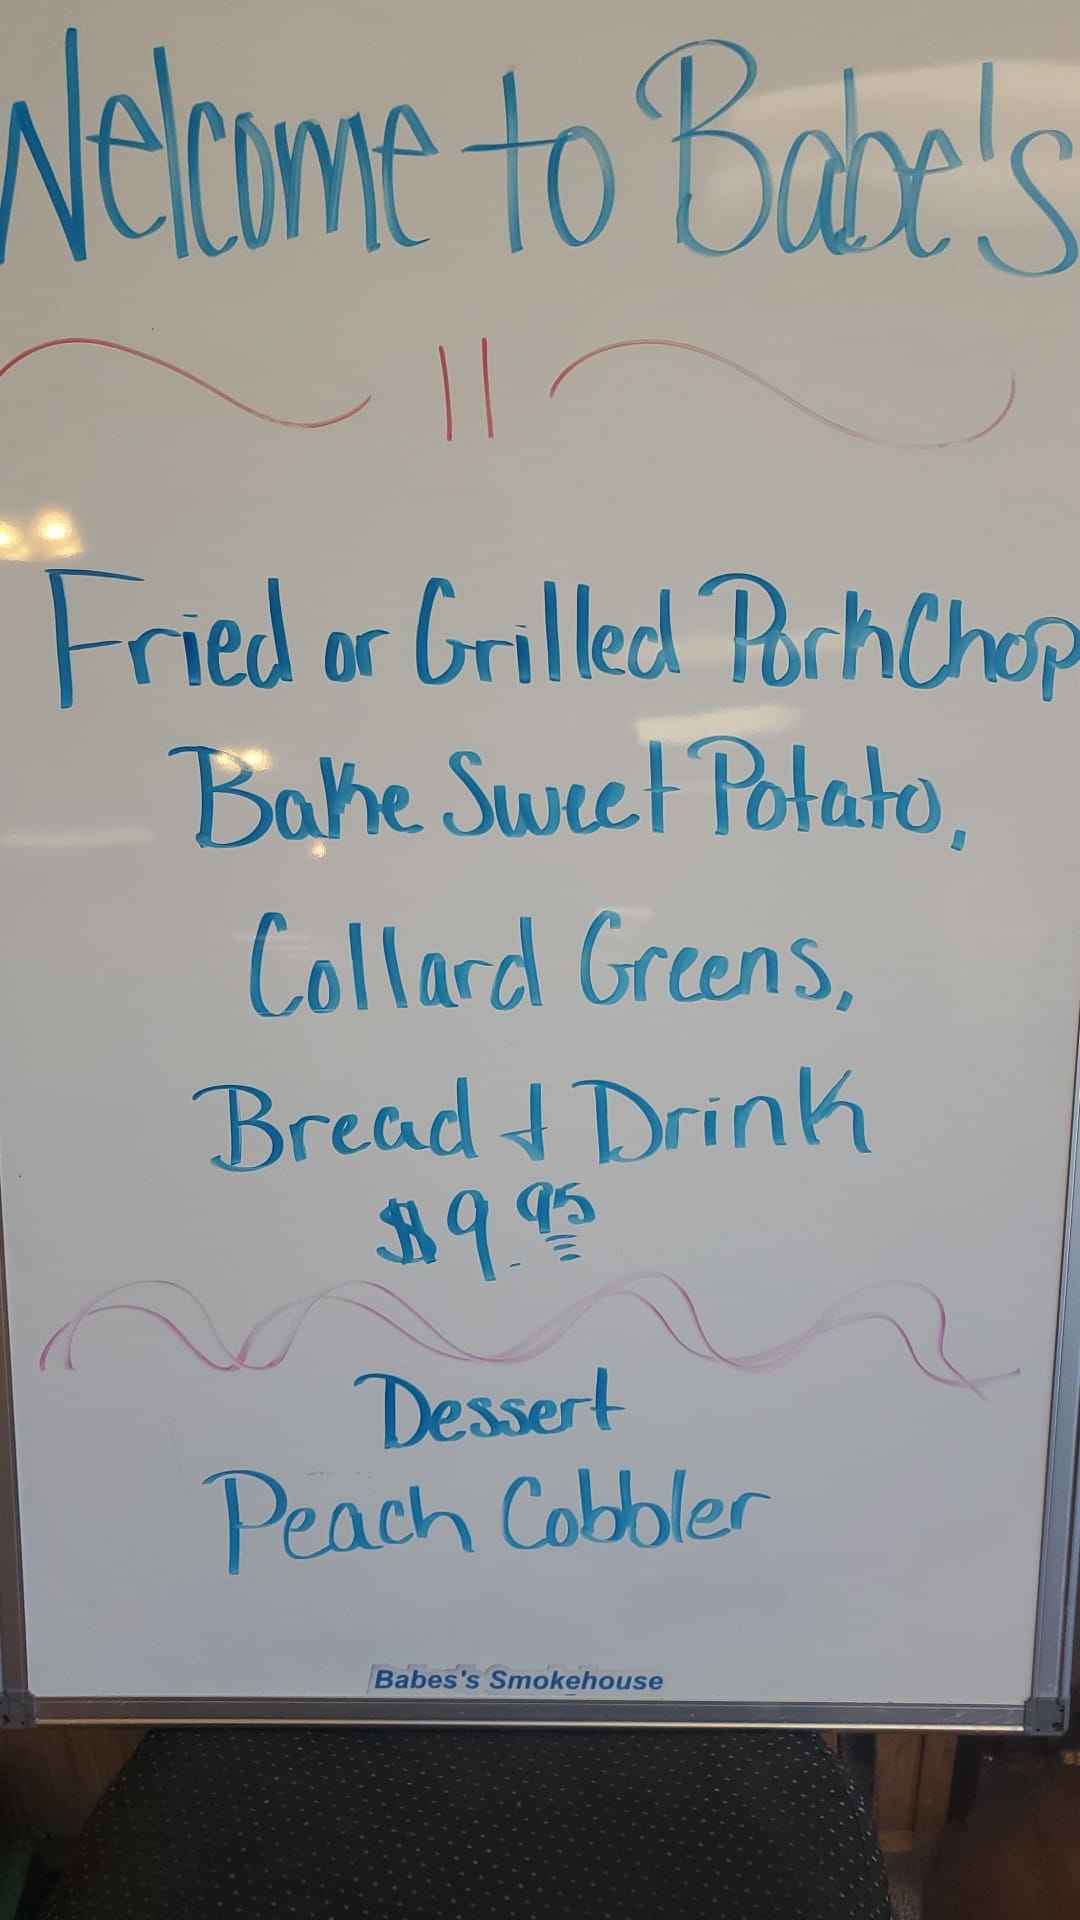 Welcome to Babe's
Fried or Grilled Pork Chop
Bake Sweet Potato,
Collard Greens,
Bread & Drink
$9.95
Dessert
Peach Cobbler
Babes's Smokehouse